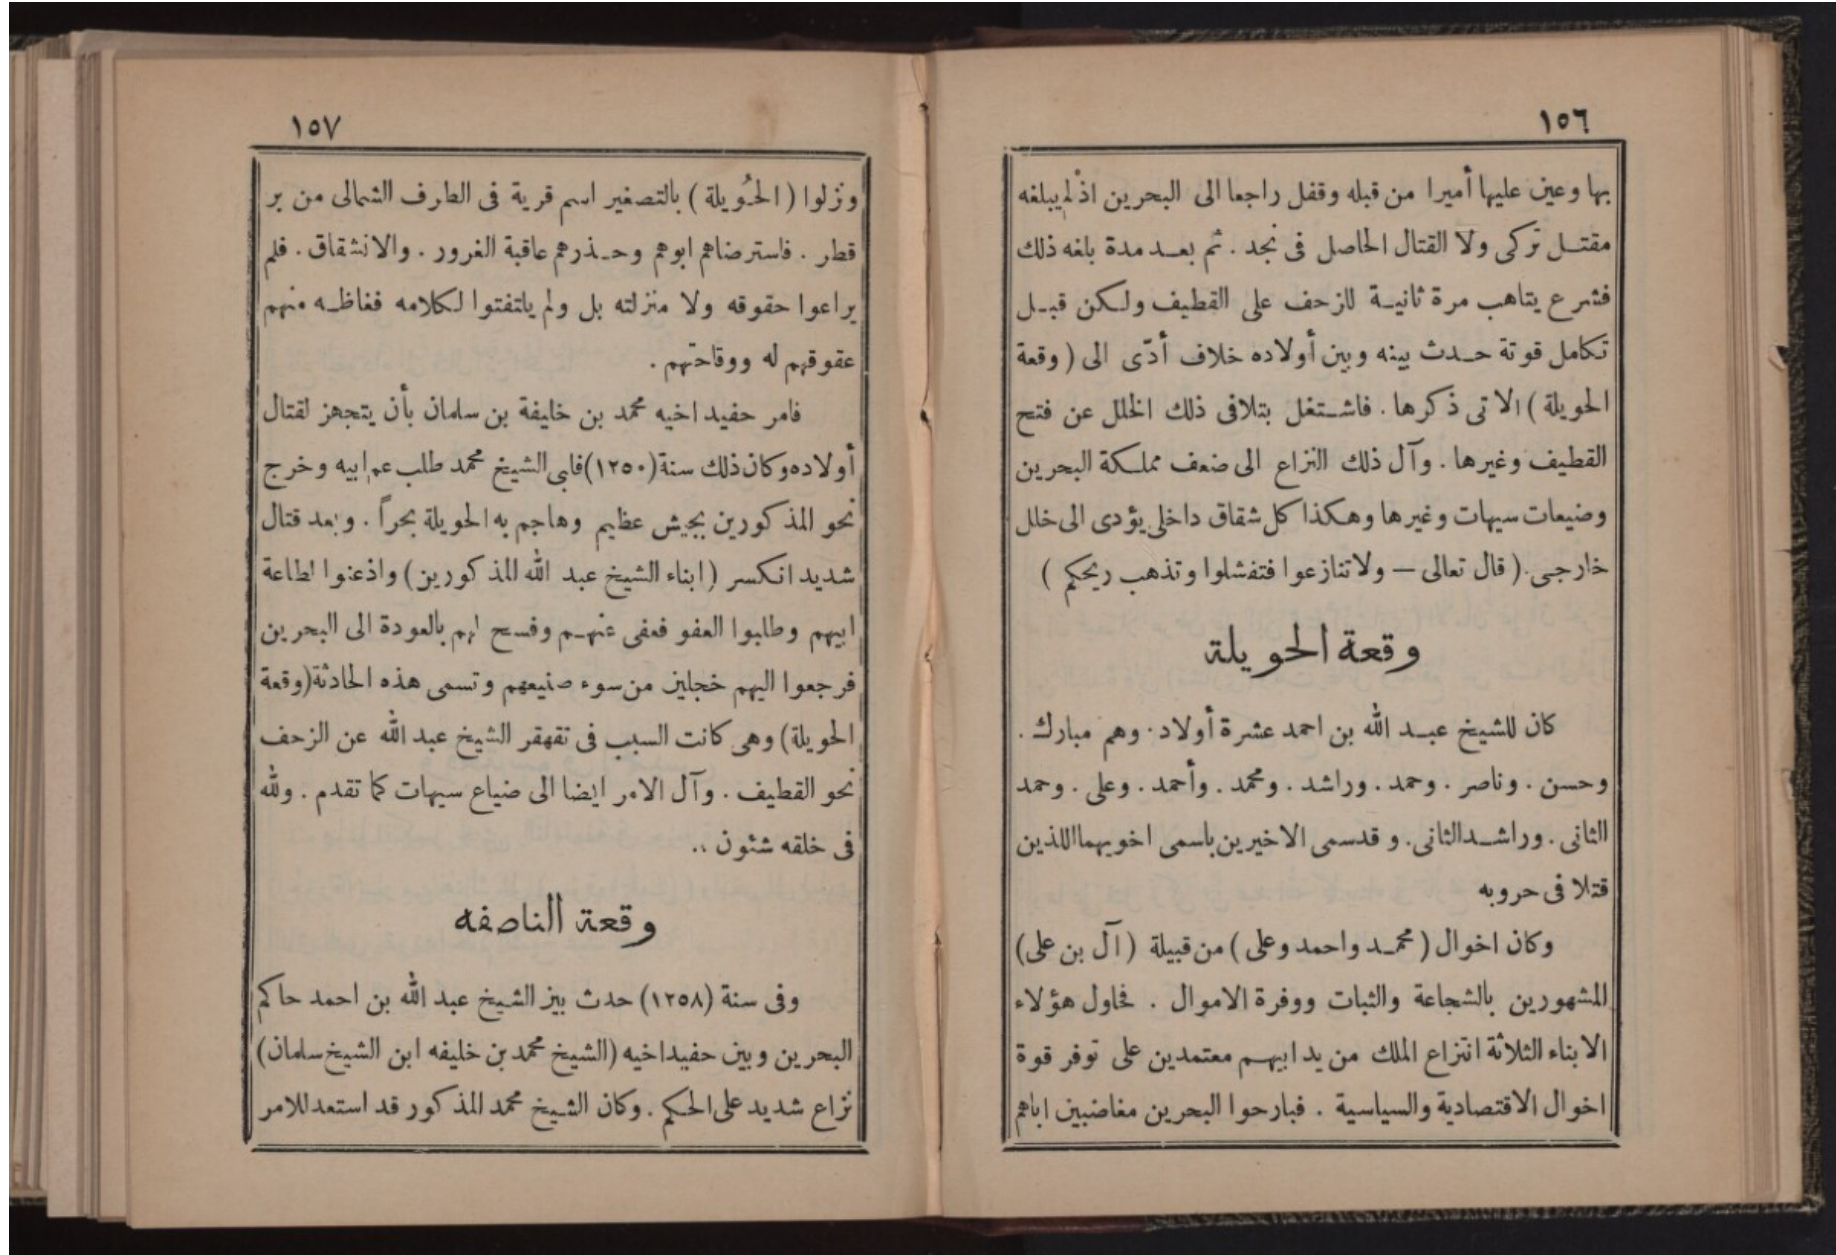 ١٥٦
بها وعين عليها أميرا من قبله وقفل راجعا الى البحرين اذْلم يبلغه
مقتـل تركى ولا القتال الحاصل فى نجد . ثم بعـد مدة بلغه ذلك
فشرع يتاهب مرة ثانيـة للزحف على القطيف ولـكن قبـل
تكامل قوتة حـدث بينه وبين أولاده خلاف أدّى الى ( وقعة
الحويلة ) الاتى ذكرها . فاشـتغل بتلافى ذلك الخلل عن فتح
القطيف وغيرها . وآل ذلك النزاع الى ضعف مملـكة البحرين
وضيعات سيهات وغيرها وهـكذا كل شقاق داخلى يؤدى الى خلل
خارجى . ( قال تعالى — ولا تنازعوا فتفشلوا وتذهب ريحكم )
وقعة الحويلة
كان للشيخ عبـد الله بن احمد عشرة أولاد . وهم مبارك .
وحسن . وناصر . وحمد . وراشد . ومحمد . وأحمد . وعلى . وحمد
الثانى . وراشـد الثانى . وقدسمى الاخيرين باسمى اخويهما اللذين
قتلا فى حروبه
وكان اخوال ( محمـد واحمد وعلى ) من قبيلة ( آل بن على )
المشهورين بالشجاعة والثبات ووفرة الاموال . فحاول هؤلاء
الابناء الثلاثة انتزاع الملك من يد ابيهـم معتمدين على توفر قوة
اخوال الاقتصادية والسياسية . فبارحوا البحرين مغاضبين اباهم
١٥٧
ونزلوا ( الحُويلة ) بالتصغير اسم قرية فى الطرف الشمالى من بر
قطر . فاسترضاهم ابوهم وحـذرهم عاقبة الغرور . والانشقاق . فلم
يراعوا حقوقه ولا منزلته بل ولم يلتفتوا لـكلامه فغاظـه منهم
عقوقهم له ووقاحتهم .
فامر حفيد اخيه محمد بن خليفة بن سلمان بأن يتجهز لقتال
أولاده وكان ذلك سنة (١٢٥٠) فلبى الشيخ محمد طلب عم ابيه وخرج
نحو المذكورين بجيش عظيم وهاجم به الحويلة بحراً . وبعد قتال
شديد انكسر ( ابناء الشيخ عبد الله المذكورين ) واذعنوا لطاعة
ابيهم وطلبوا العفو فعفى عنهـم وفسح لهم بالعودة الى البحرين
فرجعوا اليهم خجلين من سوء صنيعهم وتسمى هذه الحادثة (وقعة
الحويلة) وهى كانت السبب فى تقهقر الشيخ عبد الله عن الزحف
نحو القطيف . وآل الامر ايضا الى ضياع سيهات كما تقدم . ولله
فى خلقه شئون ..
وقعة الناصفه
وفى سنة (١٢٥٨) حدث بين الشيخ عبد الله بن احمد حاكم
البحرين وبين حفيد اخيه (الشيخ محمد بن خليفه ابن الشيخ سلمان)
نزاع شديد على الحكم . وكان الشيخ محمد المذكور قد استعد للامر